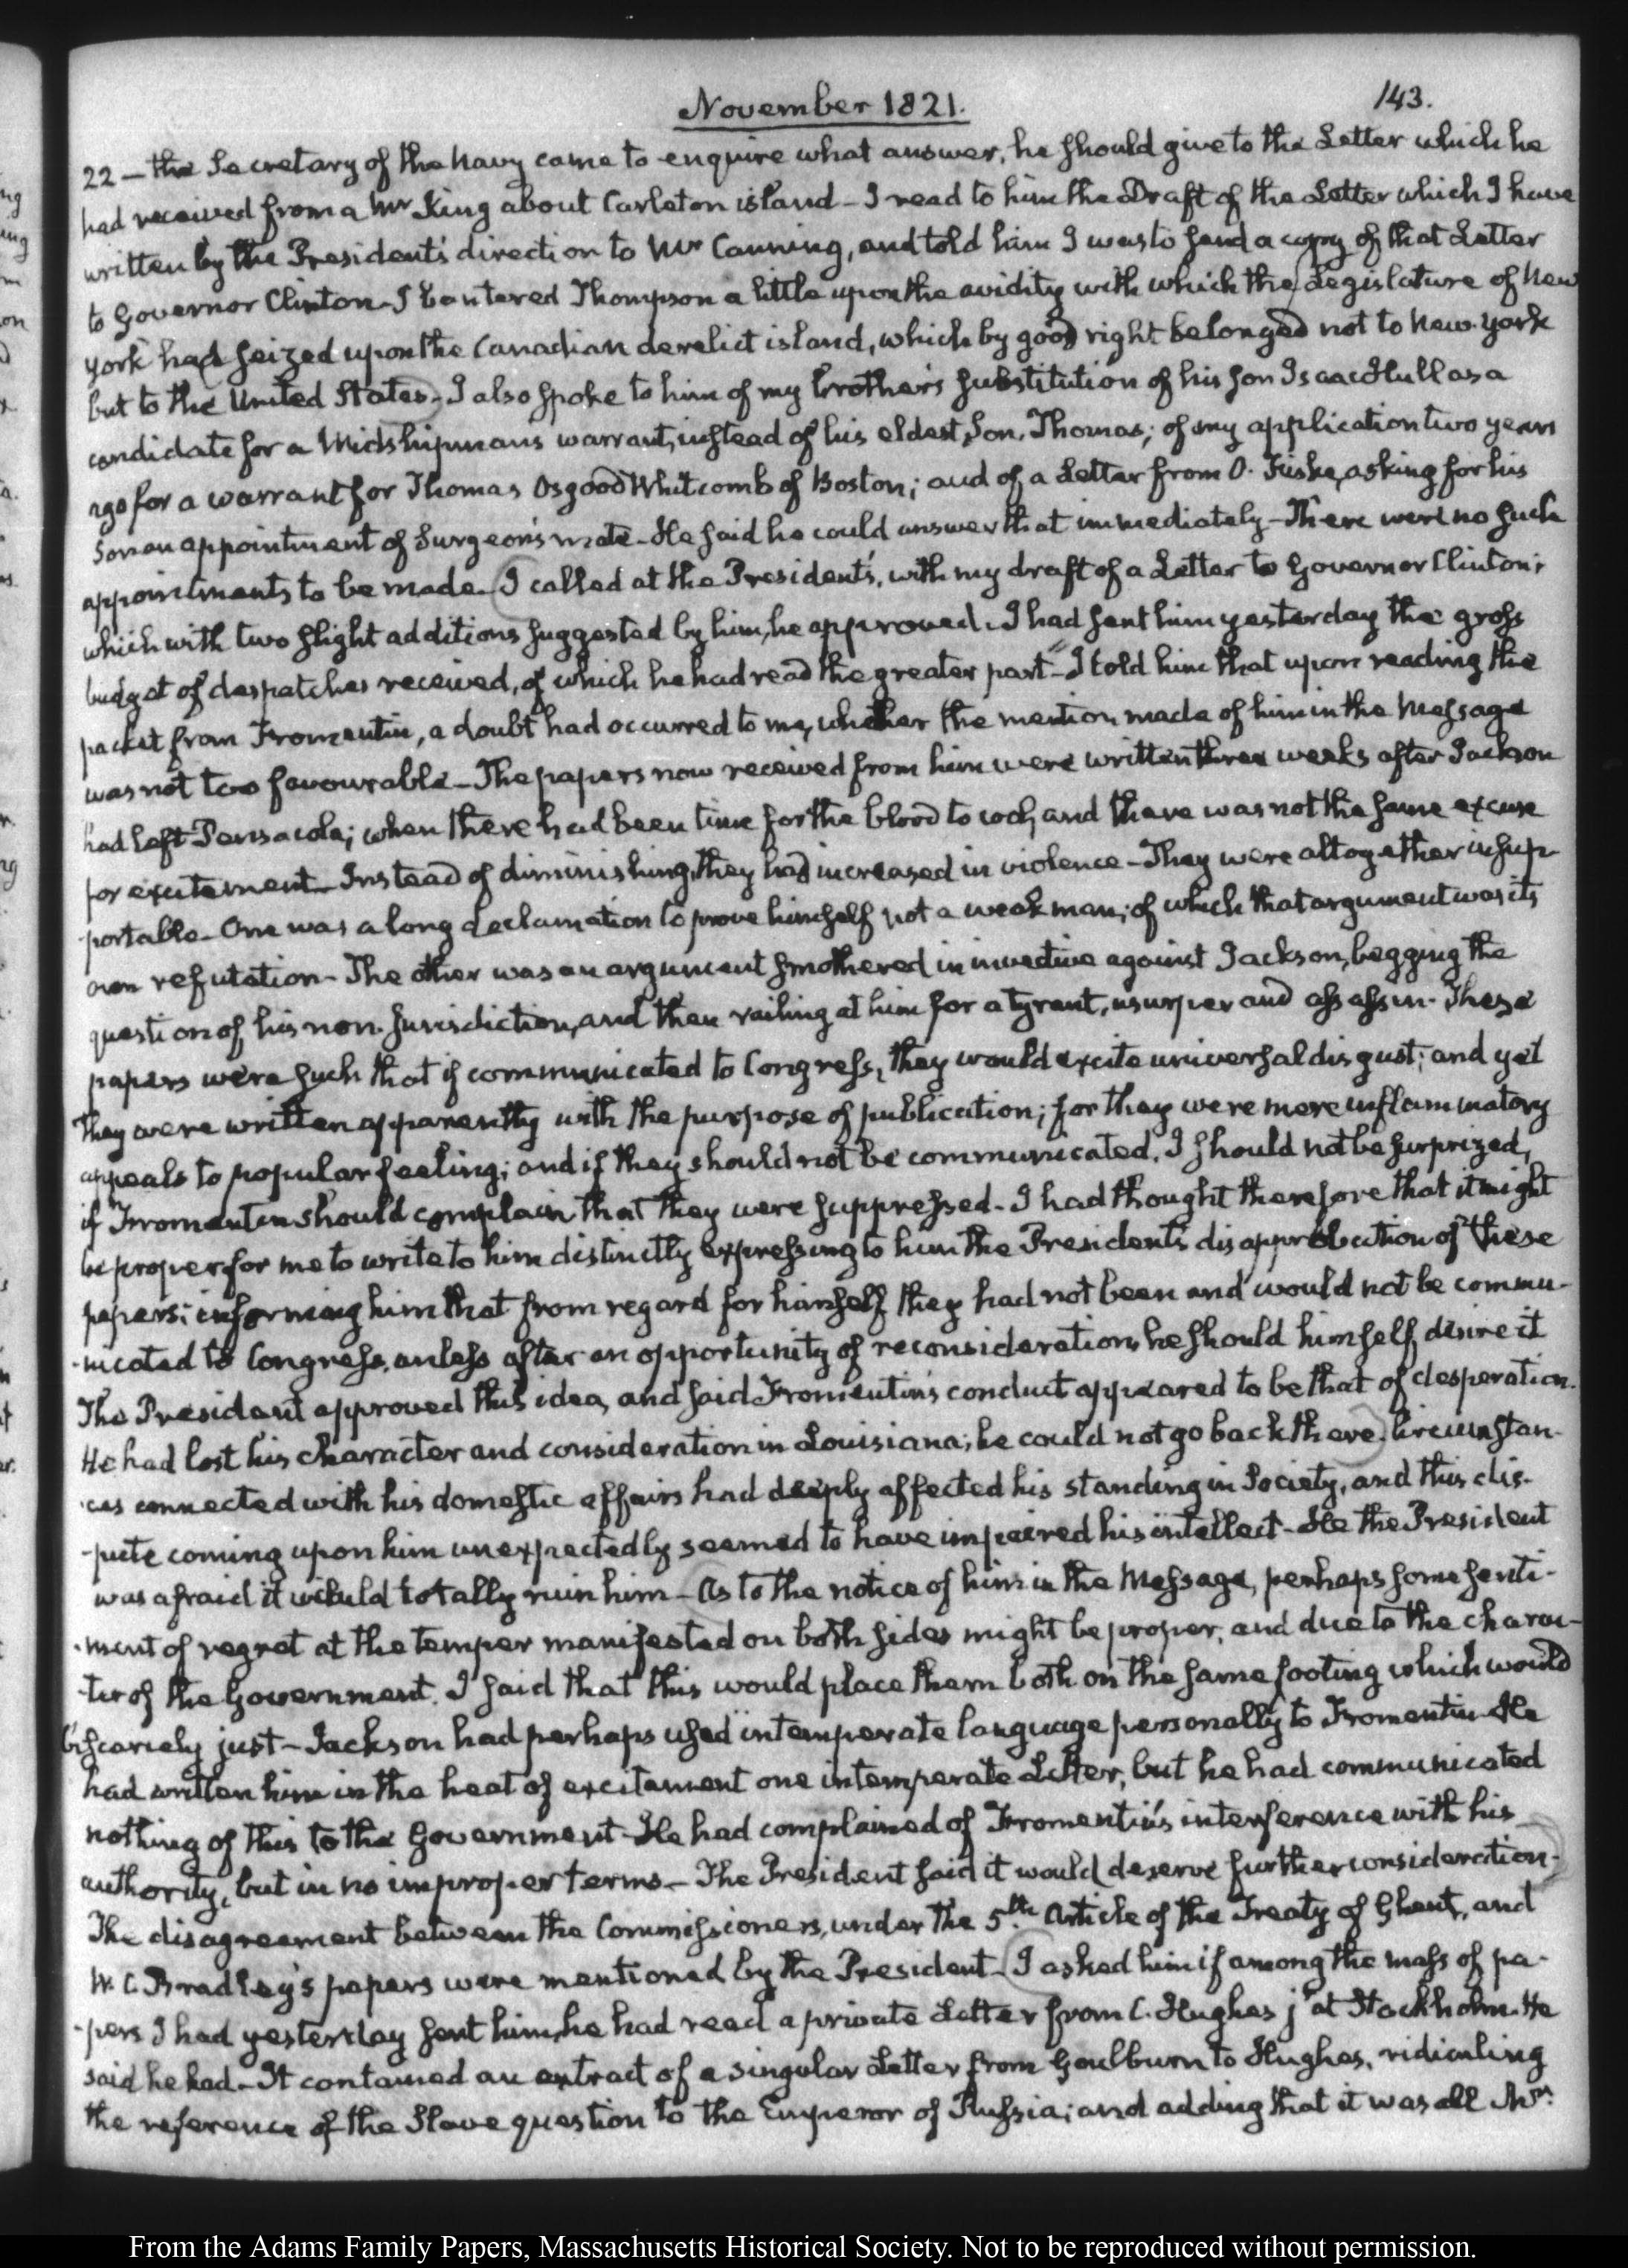 November 1821.
143.
22 — the Secretary of the Navy came to enquire what answer, he should give to the Letter which he
had received from a Mr King about Carleton island - I read to him the Draft of the Letter which I have
written by the President's direction to Mr Canning, and told him I was to send a copy of that Letter
to Governor Clinton - I bantered Thompson a little upon the avidity with which the Legislature of New
York had seized upon the Canadian derelict island, which by good right belonged not to New-York
but to the United States - I also spoke to him of my brother's substitution of his son Isaac Hull as a
candidate for a Midshipman's warrant, instead of his eldest Son, Thomas; of my application two years
ago for a warrant for Thomas Osgood Whitcomb of Boston; and of a Letter from O. Fiske, asking for his
Son an appointment of Surgeon's mate - He said he could answer that immediately - There were no such
appointments to be made - I called at the President's, with my draft of a Letter to Governor Clinton;
which with two slight additions suggested by him, he approved. I had sent him yesterday the gross
budget of despatches received, of which he had read the greater part - I told him that upon reading the
packet from Fromentin, a doubt had occurred to me, whether the mention made of him in the Message
was not too favourable - The papers now received from him were written three weeks after Jackson
had left Pensacola; when there had been time for the blood to cool, and there was not the same excuse
for excitement - Instead of diminishing, they had increased in violence - They were altogether insup-
-portable - One was a long declamation to prove himself not a weak man; of which that argument was its
own refutation - The other was an argument smothered in invective against Jackson, begging the
question of his non-jurisdiction, and then railing at him for a tyrant, usurper and assassin - These
papers were such that if communicated to Congress, they would excite universal disgust; and yet
they were written apparently with the purpose of publication; for they were mere inflammatory
appeals to popular feeling; and if they should not be communicated, I should not be surprized,
if Fromentin should complain that they were suppressed - I had thought therefore that it might
be proper for me to write to him distinctly expressing to him the President's disapprobation of these
papers; informing him that from regard for himself they had not been and would not be commu-
-nicated to Congress, unless after an opportunity of reconsideration he should himself desire it
The President approved this idea, and said Fromentin's conduct appeared to be that of desperation.
He had lost his character and consideration in Louisiana; he could not go back there. Circumstan-
-ces connected with his domestic affairs had deeply affected his standing in Society, and this dis-
-pute coming upon him unexpectedly seemed to have impaired his intellect - He the President
was afraid it would totally ruin him - As to the notice of him in the Message, perhaps some senti-
-ment of regret at the temper manifested on both sides might be proper, and due to the charac-
-ter of the Government. I said that this would place them both on the same footing which would
be scarcely just - Jackson had perhaps used intemperate language personally to Fromentin - He
had written him in the heat of excitement one intemperate Letter, but he had communicated
nothing of this to the Government - He had complained of Fromentin's interference with his
authority, but in no improper terms - The President said it would deserve further consideration -
The disagreement between the Commissioners, under the 5th. Article of the Treaty of Ghent, and
W. C. Bradley's papers were mentioned by the President - I asked him if among the mass of pa-
-pers I had yesterday sent him, he had read a private Letter from C. Hughes jr at Stockholm. He
said he had - It contained an extract of a singular Letter from Goulburn to Hughes, ridiculing
the reference of the Slave question to the Emperor of Russia; and adding that it was all Mr.
From the Adams Family Papers, Massachusetts Historical Society. Not to be reproduced without permission.